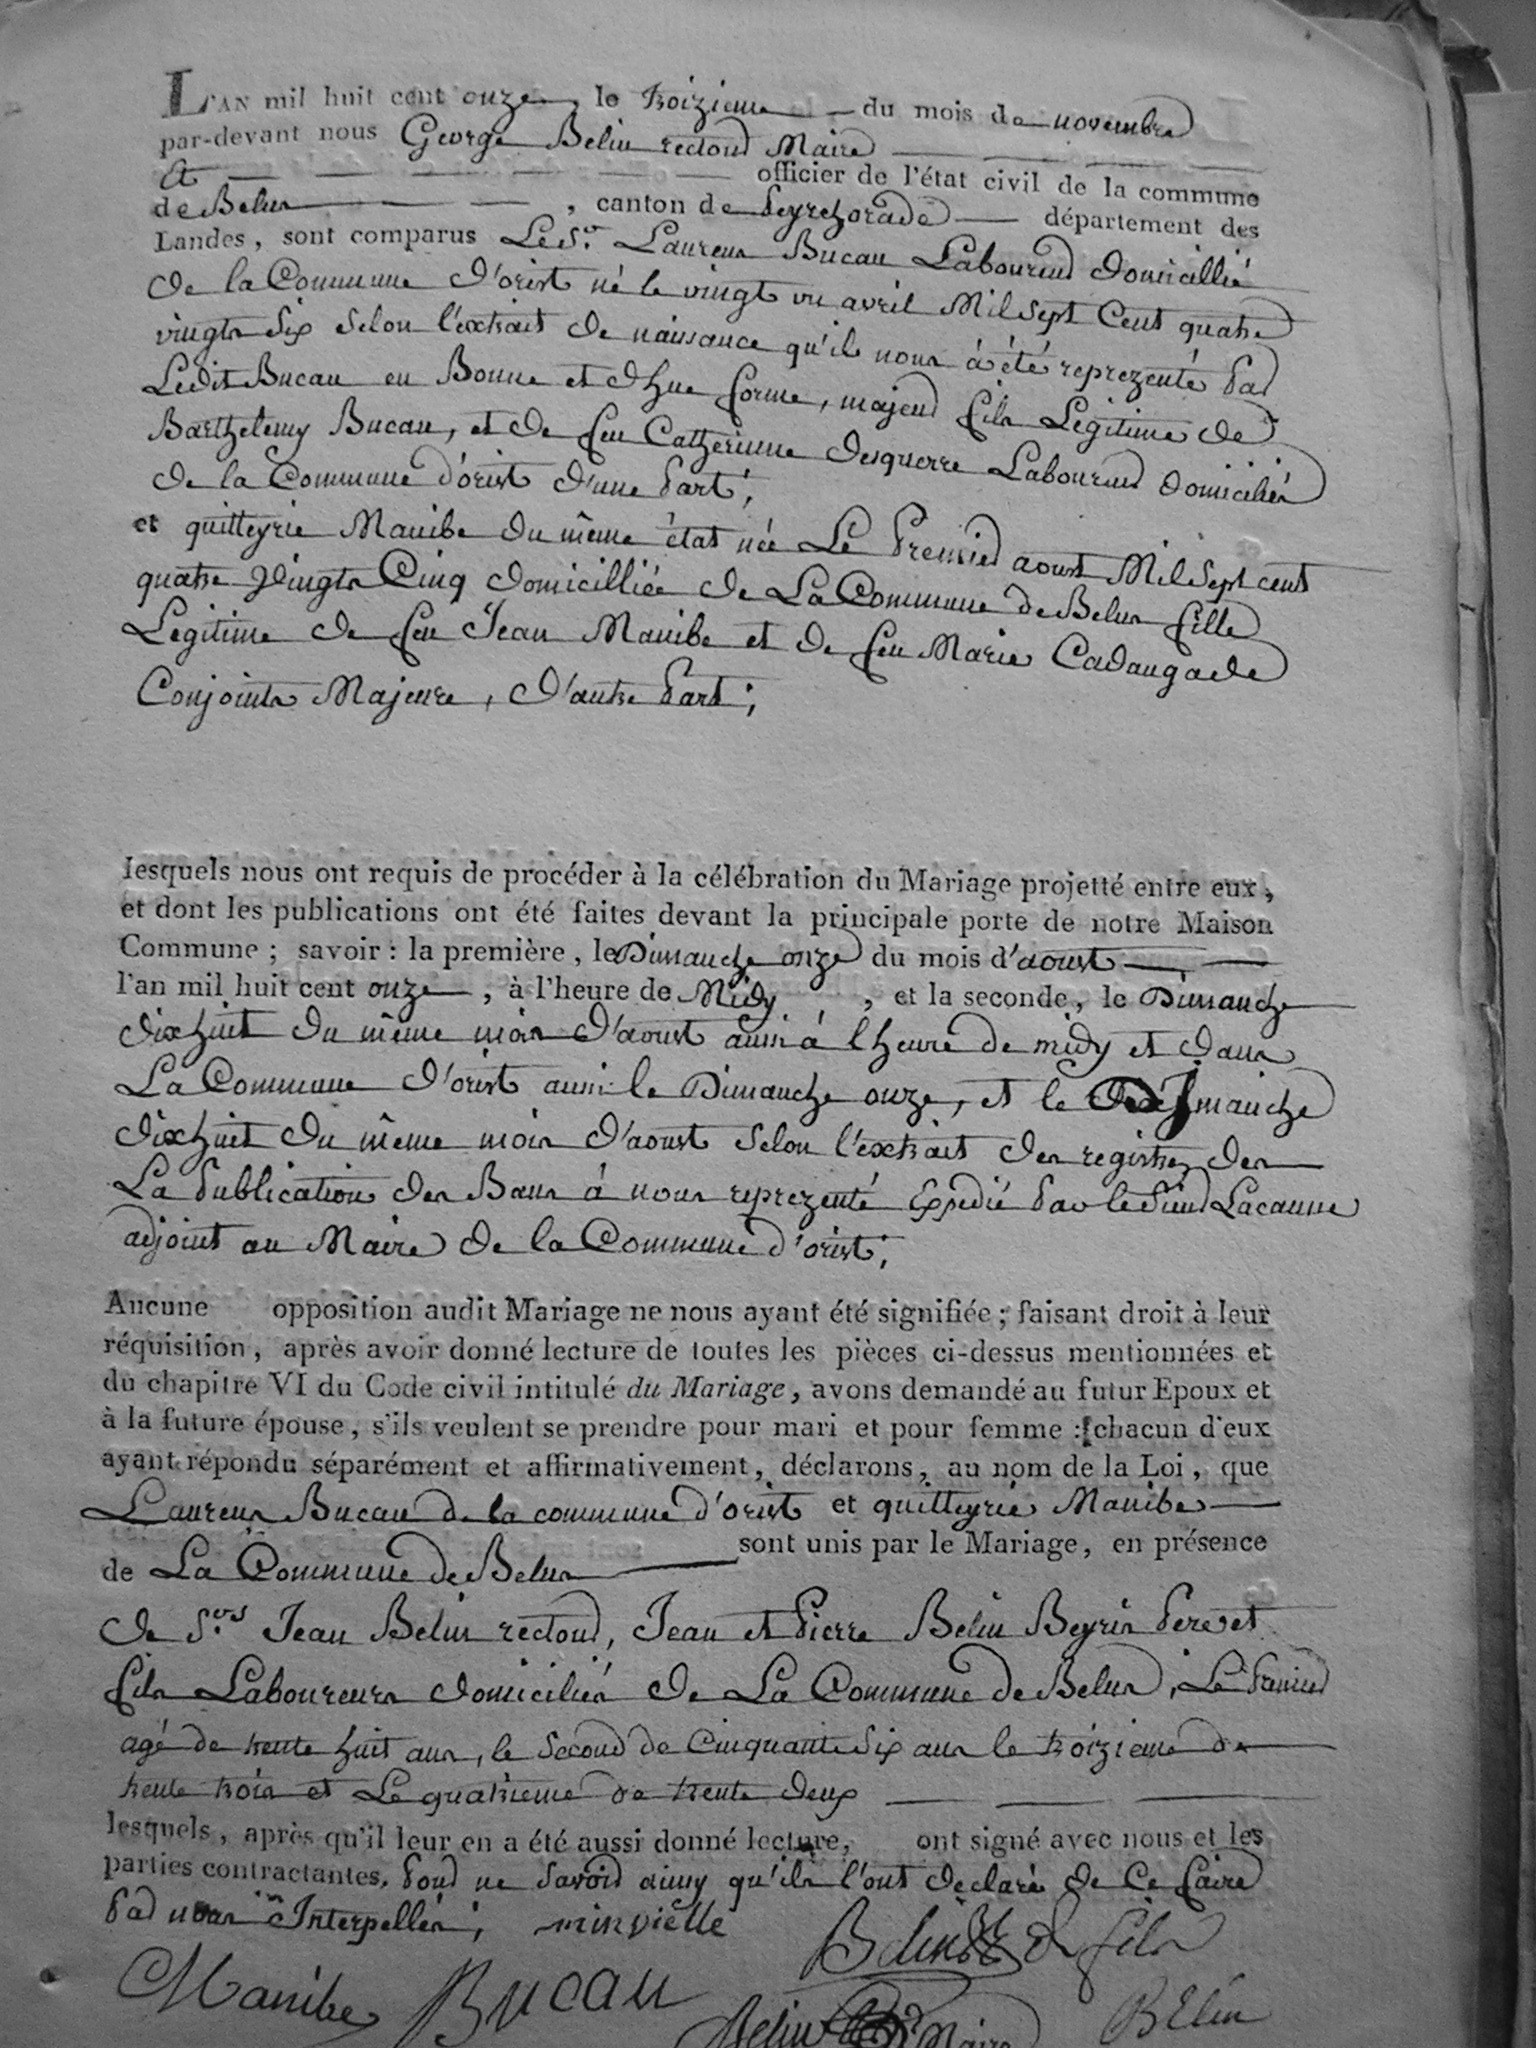 L'AN mil huit cent onze, le troizieme du mois de novembre
par-devant nous George Belin rectour Maire
et officier de l'état civil de la commune
de Belus, canton de peyrehorade département des
Landes, sont comparus Le Sr. Laurens Bucau Laboureur domicillié
de la Commune d'orist né le vingt un avril Mil Sept Cent quatre
vingts Six Selon l'extrait de naissance qu'il nous à été reprezenté par
Ledit Bucau en Bonne et dhue forme, majeur fils Legitime de
Barthelemy Bucau, et de feu Catherinne desquerre Laboureur domiciliés
de la Commune d'orist d'une part,
et quitteyrie Manibe du même état née Le premier aoust Mil Sept cent
quatre Vingts Cinq domicilliée de La Commune de Belus fille
Legitime de feu Jean Manibe et de feu Marie Cadaugade
Conjoints Majeure, d'autre part;
lesquels nous ont requis de procéder à la célébration du Mariage projetté entre eux,
et dont les publications ont été faites devant la principale porte de notre Maison
Commune; savoir: la première, le Dimanche onze du mois d'aoust
l'an mil huit cent onze, à l'heure de Midy, et la seconde, le Dimanche
dixhuit du même mois d'aoust aussi à lheure de midy et dans
La Commune d'orist aussi le Dimanche onze, et le dimanche
dixhuit du même mois d'aoust Selon l'extrait des registres des
La publication des Bans à nous reprezenté Expedié par le Sieur Lacanne
adjoint au Maire de la Commune d'orist;
Aucune opposition audit Mariage ne nous ayant été signifiée; faisant droit à leur
réquisition, après avoir donné lecture de toutes les pièces ci-dessus mentionnées et
du chapitre VI du Code civil intitulé du Mariage, avons demandé au futur Epoux et
à la future épouse, s'ils veulent se prendre pour mari et pour femme: chacun d'eux
ayant répondu séparément et affirmativement, déclarons, au nom de la Loi, que
Laurens Bucau de la commune d'orist et quitteyrie Manibe
de La Commune de Belus sont unis par le Mariage, en présence
de Srs Jean Belin rectour, Jean et Pierre Belin Beyris pere et
fils Laboureurs domiciliés de La Commune de Belus, Le premier
agé de trente huit ans, le Second de Cinquante Six ans le troizieme de
trente trois et Le quatrieme de trente deux
lesquels, après qu'il leur en a été aussi donné lecture, ont signé avec nous et les
parties contractantes, pour ne Savoir ainsy qu'ils l'ont declaré de Ce faire
par nous Interpellés; minvielle Belin fils
Manibe Bucau Belin Maire Belin